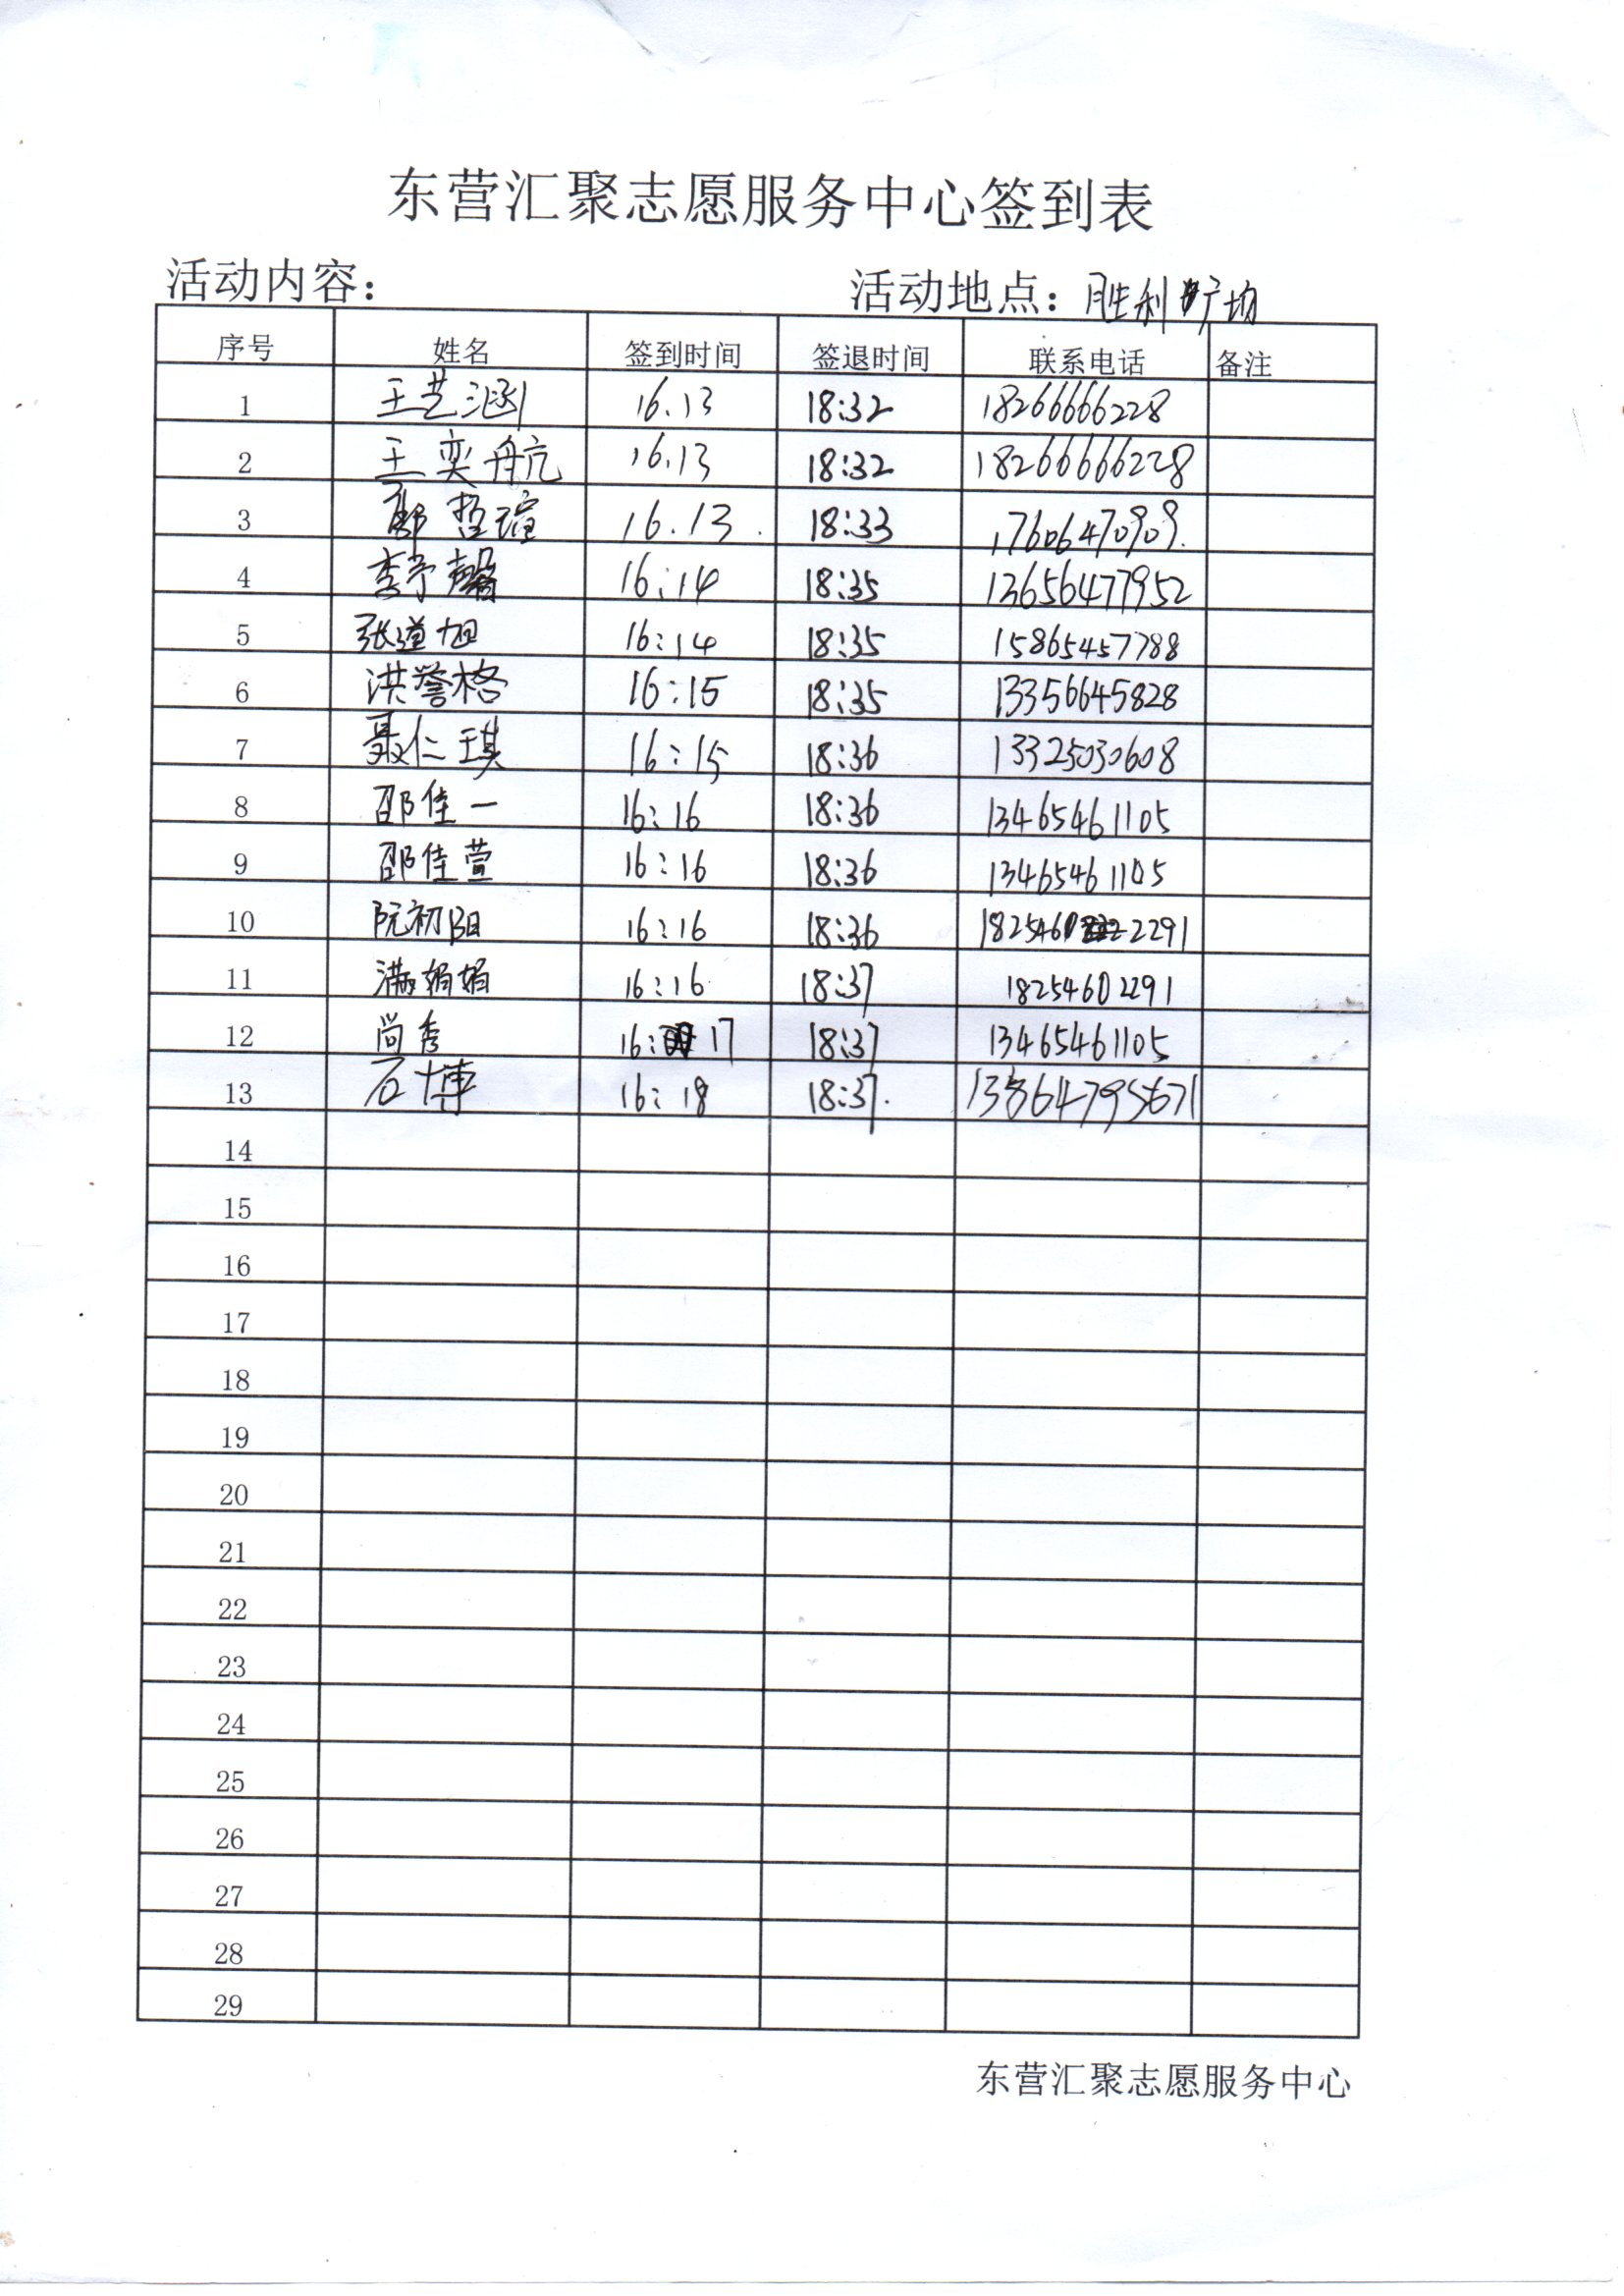 东营汇聚志愿服务中心签到表
活动内容： 活动地点：胜利广场
序号 姓名 签到时间 签退时间 联系电话 备注
1 王艺涵 16.13 18:32 18266666228
2 王奕航 16.13 18:32 18266666228
3 郭哲瑄 16.13. 18:33 17606470909.
4 李予馨 16:14 18:35 13656477952
5 张道旭 16:14 18:35 15865457788
6 洪誉格 16:15 18:35 13356645828
7 聂仁琪 16:15 18:36 13325030608
8 邵佳一 16:16 18:36 13465461105
9 邵佳萱 16:16 18:36 13465461105
10 阮初阳 16:16 18:36 18254602291
11 满娟娟 16:16 18:37 18254602291
12 尚秀 16:17 18:37 13465461105
13 石博 16:18 18:37. 13864795671
14
15
16
17
18
19
20
21
22
23
24
25
26
27
28
29
东营汇聚志愿服务中心